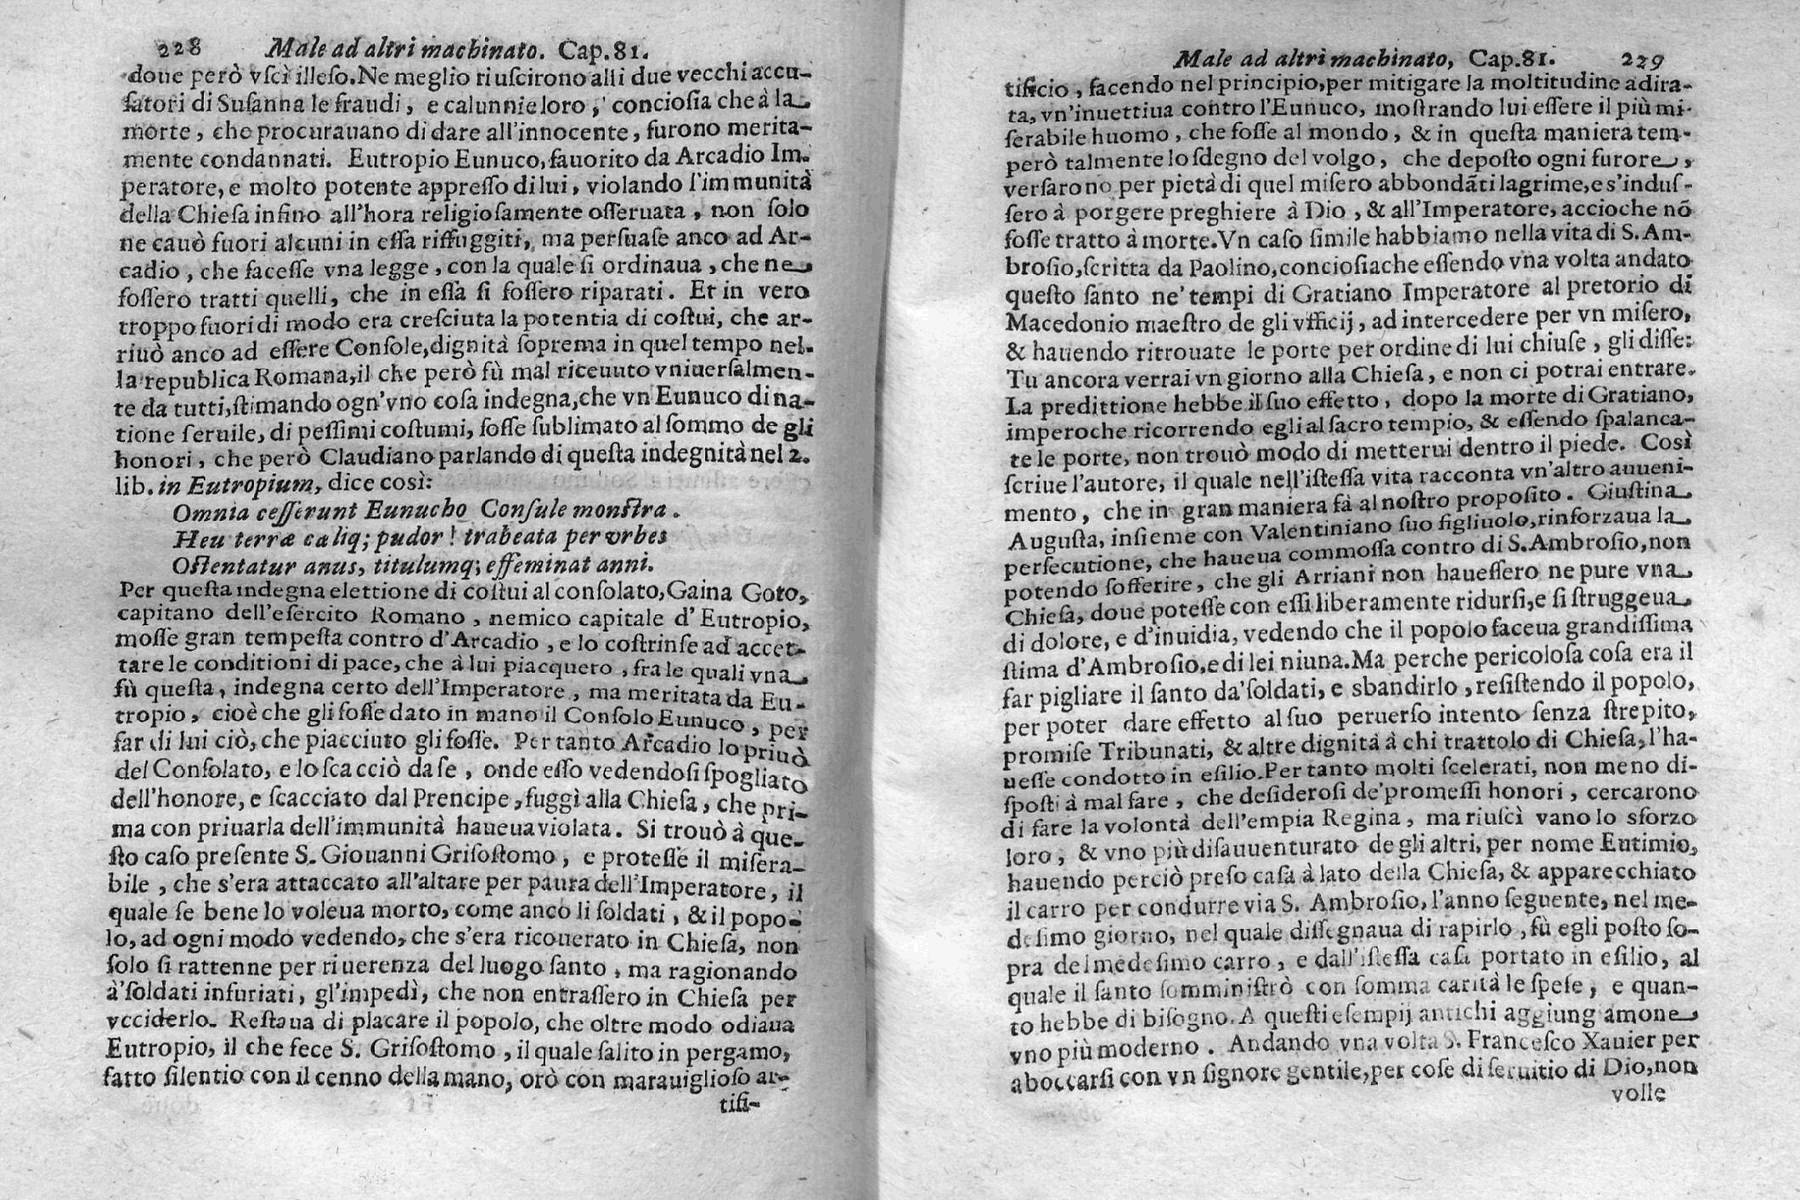 228 Male ad altri machinato. Cap.81.
doue però vscì illeso.Ne meglio riuscirono alli due vecchi accu-
satori di Susanna le fraudi, e calunnie loro, conciosia che à la
morte, che procurauano di dare all'innocente, furono merita-
mente condannati. Eutropio Eunuco, fauorito da Arcadio Im-
peratore, e molto potente appresso di lui, violando l'immunità
della Chiesa infino all'hora religiosamente osseruata, non solo
ne cauò fuori alcuni in essa riffuggiti, ma persuase anco ad Ar-
cadio, che facesse vna legge, con la quale si ordinaua, che ne
fossero tratti quelli, che in essa si fossero riparati. Et in vero
troppo fuori di modo era cresciuta la potentia di costui, che ar-
riuò anco ad essere Console,dignità soprema in quel tempo nel-
la republica Romana,il che però fù mal riceuuto vniuersalmen-
te da tutti,stimando ogn'vno cosa indegna,che vn Eunuco di na-
tione seruile, di pessimi costumi, fosse sublimato al sommo de gli
honori, che però Claudiano parlando di questa indegnità nel 2.
lib. in Eutropium, dice così:
Omnia cesserunt Eunucho Consule monstra.
Heu terræ cæliq; pudor! trabeata per vrbes
Ostentatur anus, titulumq; effeminat anni.
Per questa indegna elettione di costui al consolato,Gaina Goto,
capitano dell'esercito Romano, nemico capitale d'Eutropio,
mosse gran tempesta contro d'Arcadio, e lo costrinse ad accet-
tare le conditioni di pace, che à lui piacquero, fra le quali vna
fù questa, indegna certo dell'Imperatore, ma meritata da Eu-
tropio, cioè che gli fosse dato in mano il Consolo Eunuco, per
far di lui ciò, che piacciuto gli fosse. Per tanto Arcadio lo priuò
del Consolato, e lo scacciò da se, onde esso vedendosi spogliato
dell'honore, e scacciato dal Prencipe, fuggì alla Chiesa, che pri-
ma con priuarla dell'immunità haueua violata. Si trouò à que-
sto caso presente S. Giouanni Grisostomo, e protesse il misera-
bile, che s'era attaccato all'altare per paura dell'Imperatore, il
quale se bene lo voleua morto, come anco li soldati, & il popo-
lo, ad ogni modo vedendo, che s'era ricouerato in Chiesa, non
solo si rattenne per riuerenza del luogo santo, ma ragionando
à'soldati infuriati, gl'impedì, che non entrassero in Chiesa per
vcciderlo. Restaua di placare il popolo, che oltre modo odiaua
Eutropio, il che fece S. Grisostomo, il quale salito in pergamo,
fatto silentio con il cenno della mano, orò con marauiglioso ar-
tifi-
Male ad altri machinato, Cap.81. 229
tificio, facendo nel principio,per mitigare la moltitudine adira-
ta, vn'inuettiua contro l'Eunuco, mostrando lui essere il più mi-
serabile huomo, che fosse al mondo, & in questa maniera tem-
però talmente lo sdegno del volgo, che deposto ogni furore,
versarono per pietà di quel misero abbondāti lagrime,e s'indus-
sero à porgere preghiere à Dio, & all'Imperatore, accioche nō
fosse tratto à morte.Vn caso simile habbiamo nella vita di S.Am-
brosio,scritta da Paolino,conciosiache essendo vna volta andato
questo santo ne' tempi di Gratiano Imperatore al pretorio di
Macedonio maestro de gli vfficij, ad intercedere per vn misero,
& hauendo ritrouate le porte per ordine di lui chiuse, gli disse:
Tu ancora verrai vn giorno alla Chiesa, e non ci potrai entrare.
La predittione hebbe il suo effetto, dopo la morte di Gratiano,
imperoche ricorrendo egli al sacro tempio, & essendo spalanca-
te le porte, non trouò modo di metterui dentro il piede. Così
scriue l'autore, il quale nell'istessa vita racconta vn'altro auueni-
mento, che in gran maniera fà al nostro proposito. Giustina
Augusta, insieme con Valentiniano suo figliuolo,rinforzaua la
persecutione, che haueua commossa contro di S.Ambrosio,non
potendo sofferire, che gli Arriani non hauessero ne pure vna
Chiesa, doue potesse con essi liberamente ridursi,e si struggeua
di dolore, e d'inuidia, vedendo che il popolo faceua grandissima
stima d'Ambrosio,e di lei niuna.Ma perche pericolosa cosa era il
far pigliare il santo da'soldati, e sbandirlo, resistendo il popolo,
per poter dare effetto al suo peruerso intento senza strepito,
promise Tribunati, & altre dignità à chi trattolo di Chiesa, l'ha-
uesse condotto in esilio.Per tanto molti scelerati, non meno di-
sposti à mal fare, che desiderosi de'promessi honori, cercarono
di fare la volontà dell'empia Regina, ma riuscì vano lo sforzo
loro, & vno più disauuenturato de gli altri, per nome Eutimio,
hauendo perciò preso casa à lato della Chiesa, & apparecchiato
il carro per condurre via S. Ambrosio, l'anno seguente, nel me-
desimo giorno, nel quale dissegnaua di rapirlo, fù egli posto so-
pra del medesimo carro, e dall'istessa casa portato in esilio, al
quale il santo somministrò con somma carità le spese, e quan-
to hebbe di bisogno. A questi esempij antichi aggiungiamone
vno più moderno. Andando vna volta S. Francesco Xauier per
aboccarsi con vn signore gentile,per cose di seruitio di Dio,non
volle